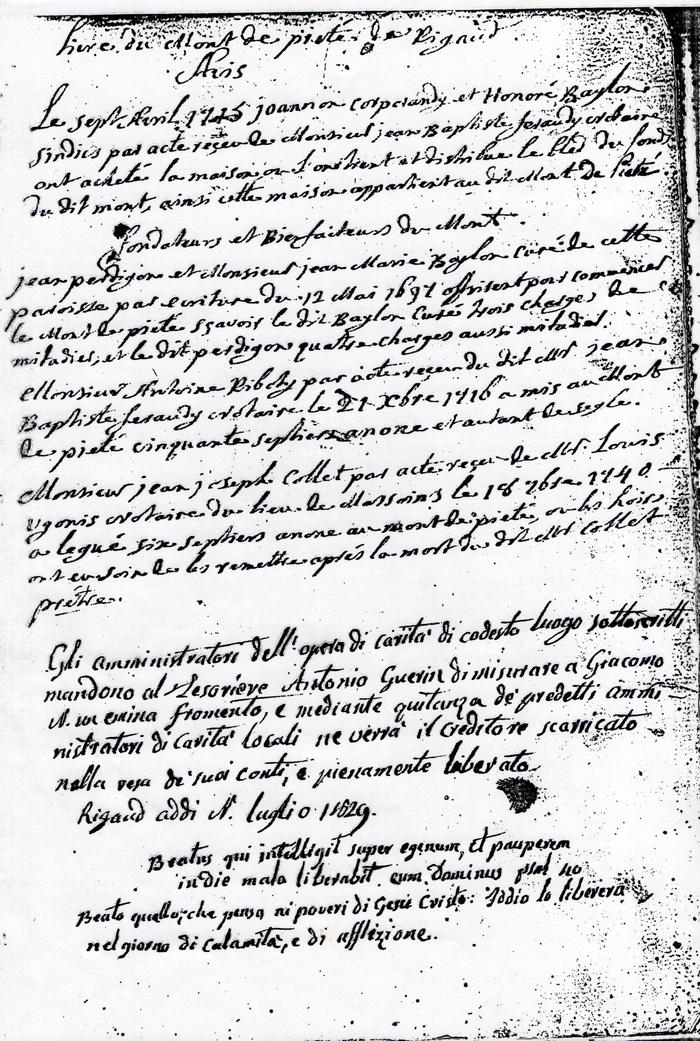 Livre du Mont de pieté de Rigaud
Avis
Le sept Avril 1745 joannon Corporandy et Honoré Baylon
sindics par acte reçeu de Monsieur jean Baptiste feraudy Notaire
ont acheté la maison ou l'on tient et distribue le Bled du fond
du dit mont, ainsi cette maison appartient au dit Mont de Pieté.
fondateurs et Bienfaiteurs du Mont.
jean perdigon et Monsieur jean Marie Baylon Curé de cette
paroisse par ecriture du 12 Mai 1697 offrirent pour commencer
le Mont de pieté sçavoir le dit Baylon Curé trois charges de
mitadier, et le dit perdigon quatre charges aussi mitadier.
Monsieur Antoine Riboty par acte reçeu du dit Mr jean
Baptiste feraudy Notaire le 21 Xbre 1716 a mis au Mont
de pieté cinquante septiers anone et autant de segle.
Monsieur jean joseph Collet par acte reçeu de Mr Louis
Ugonis Notaire du lieu de Massoins le 18 7bre 1740
a legué six septiers anone au mont de pieté ou les hoirs
ont eu soin de les remettre aprés la mort du dit Mr Collet
prêtre.
Gli amministratori dell'opera di carità di codesto luogo sottoscritti
mandono al Tesoriere Antonio Guerin di misurare a Giacomo
N. un emina fromento, e mediante quitanza de' predetti ammi-
nistratori di Carità locali ne verrà il Creditore scarricato
nella resa de' suoi conti, e pienamente liberato
Rigaud addi N. luglio 1829.
Beatus qui intelligit super egenum, et pauperem
in die mala liberabit eum Dominus psal 40
Beato quello, che pensa ai poveri di Gesù Cristo: Iddio lo libererà
nel giorno di calamità, e di afflizione.